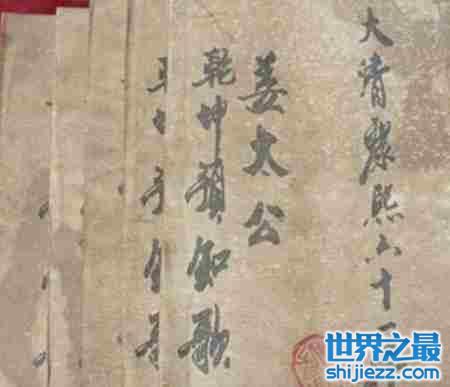 大清康熙六十一
姜太公
乾坤預知歌
世界之最
shijiezz.com